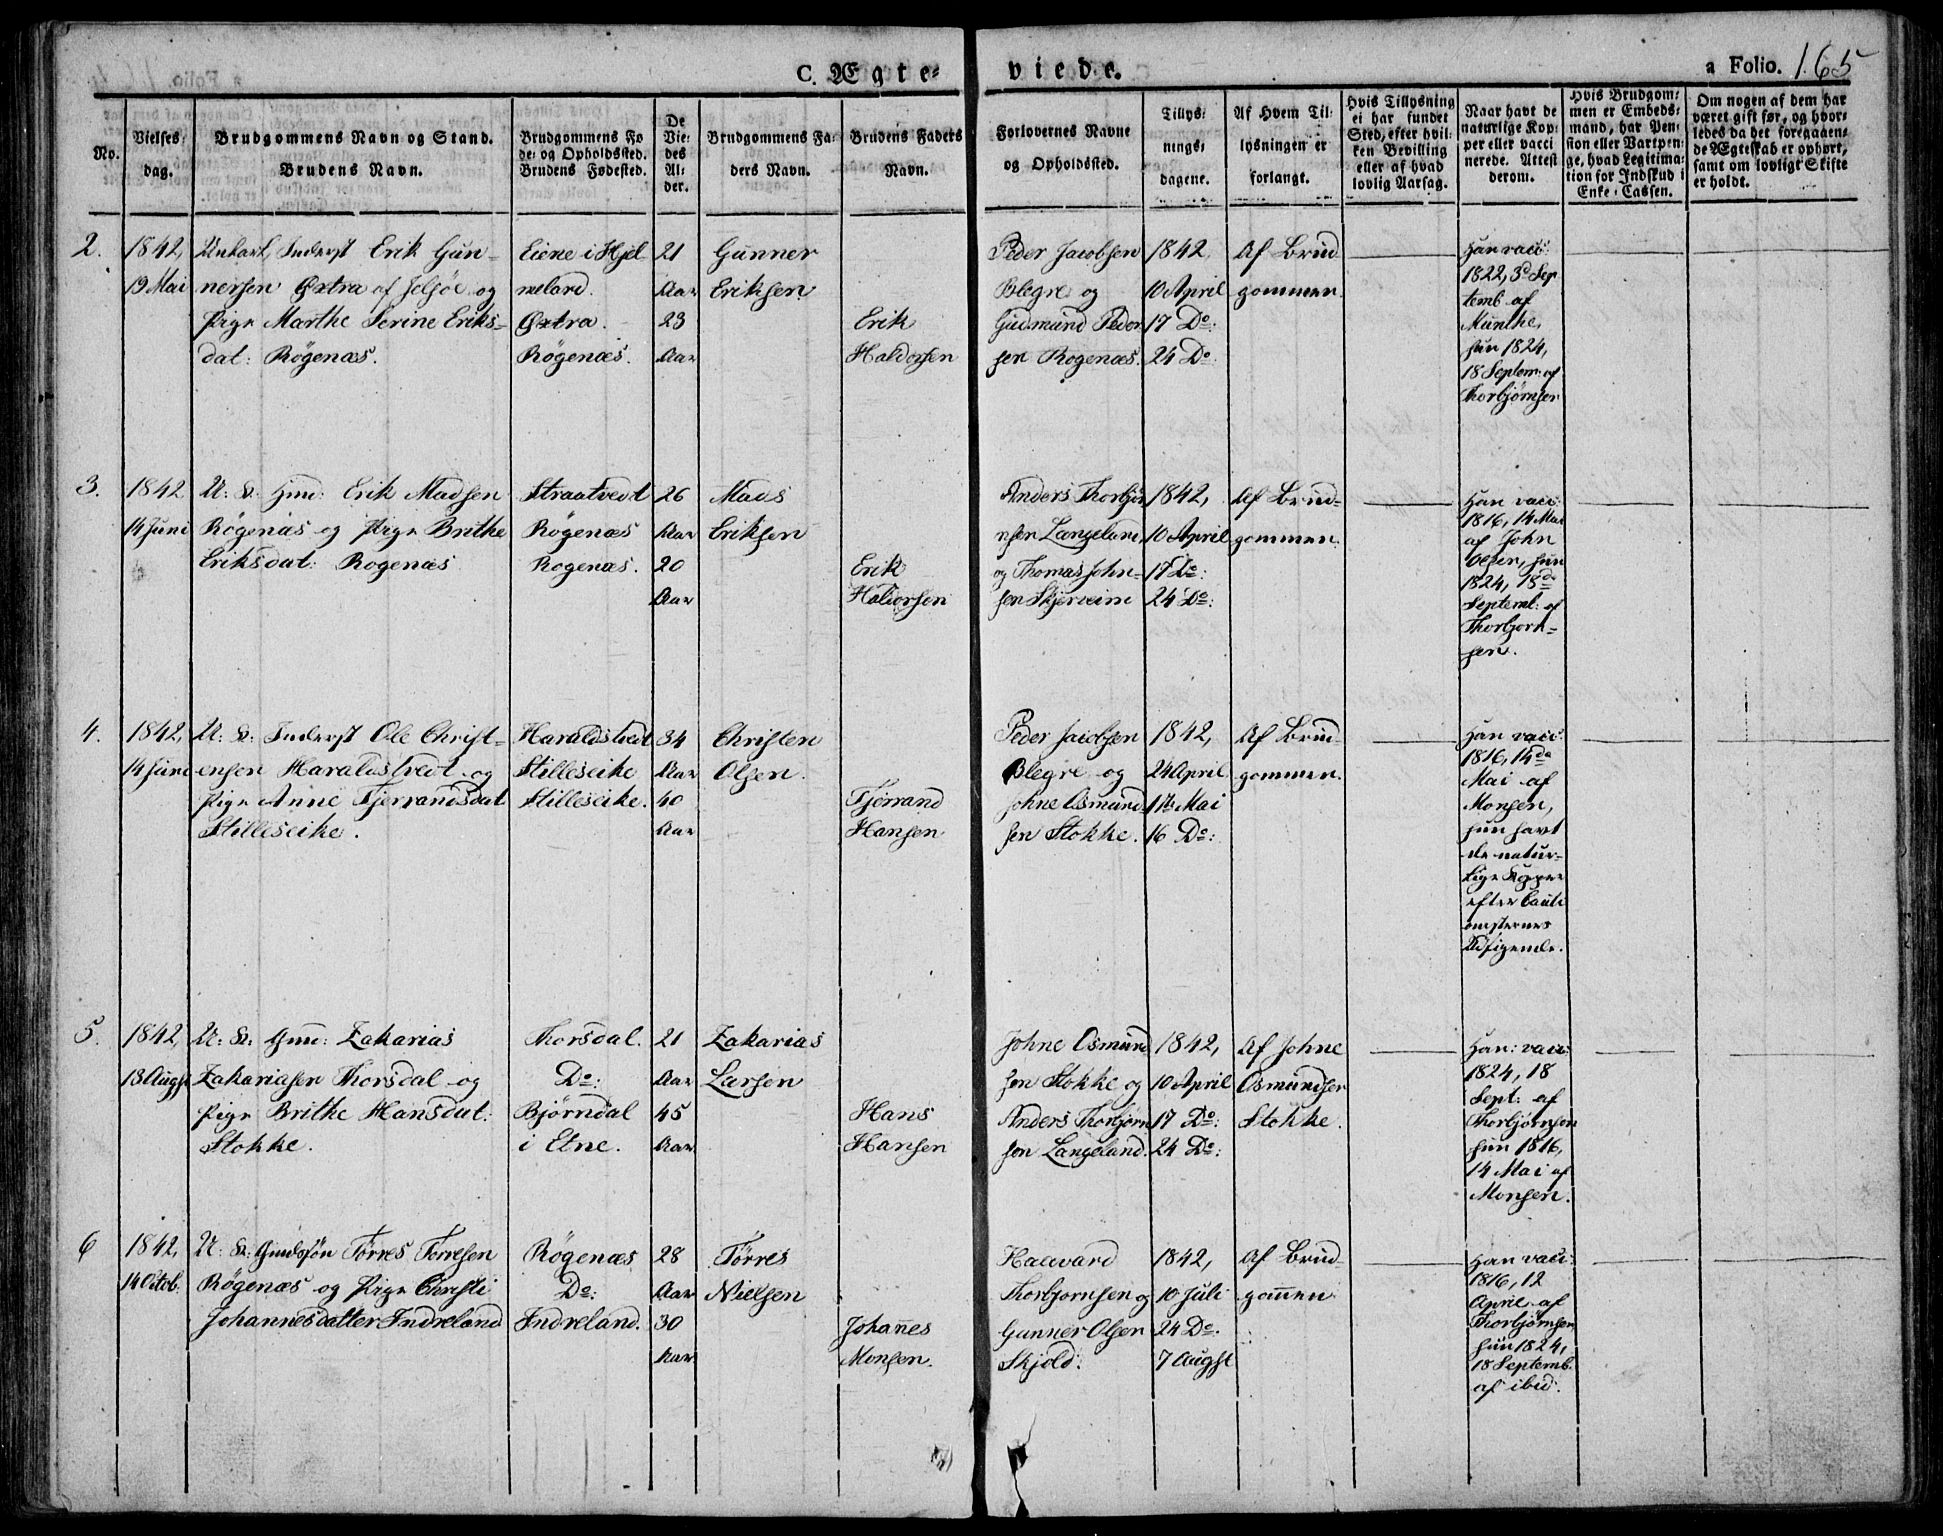 C. Ægte-
viede.
a Folio. 165
No.
Vielses-
dag.
Brudgommens Navn og Stand.
Brudens Navn.
Brudgommens Fø
de- og Opholdssted.
Brudens Fødested.
De
Vie-
des
Al-
der.
Brudgommens Fa-
ders Navn.
Brudens Faders
Navn.
Forlovernes Navne
og Opholdssted.
Tillys-
nings-
dagene.
Af Hvem Til-
lysningen er
forlangt.
Hvis Tillysning
ei har fundet
Sted, efter hvil-
ken Bevilling
eller af hvad
lovlig Aarsag.
Naar havt de
naturlige Kop-
per eller vacci
nerede. Attest
derom.
Hvis Brudgom-
men er Embeds-
mand, har Pen-
sion eller Vartpen-
ge, hvad Legitima-
tion for Indskud i
Enke-Cassen.
Om nogen af dem har
været gift før, og hvor-
ledes da det foregaaen-
de Ægteskab er ophørt,
samt om lovligt Skifte
er holdt.
2.
1842,
19 Mai
Unkarl, Inderst Erik Gun-
nersen Østra af Jelsøe og
Pige Marthe Serine Eriks-
dat: Røgenæs.
Eiene i Hjel
meland.
Østra.
Røgenæs.
21
Aar
23
Aar
Gunner
Eriksen
Erik
Haldorsen
Peder Jacobsen
Blegre og
Gudmund Peder
sen Rogenæs.
1842,
10 April
17 Do:
24 Do.
Af Brud
gommen.
Han vacc:
1822, 3d Sep
temb af
Munthe,
hun 1824,
18 Septem: af
Thorbjørnsen
3.
1842
14 Juni
U: K: Gmd: Erik Madsen
Røgenæs og Pige Brithe
Eriksdat: Rogenæs.
Straatvedt
Røgenæs
Rogenæs.
26
Aar
20
Aar
Mads
Eriksen
Erik
Haldorsen
Anders Thorbjør
nsen Langeland
og Thomas John-
sen Skjerveim
1842,
10 April
17 Do:
24 Do:
Af Brud-
gommen.
Han vacc:
1816, 14 Mai
af John
Olsen, hun
1824, 18de
Septemb: af
Thorbjørn-
sen.
4.
1842,
14 Juni
U: K: Inderst Ole Christ-
ensen Haraldstvedt og
Pige Anne Tjerrandsdat
Stilleseike.
Haraldstvedt
Stilleseike
Stilleseike.
34
Aar
40
Aar
Christen
Olsen.
Tjerrand
Hansen
Peder Jacobsen
Blegre og
Johne Osmund
sen Stokke.
1842,
24 April
1ste Mai
16 Do:
Af Brud
gommen.
Han vacc:
1816, 14de
Mai af
Monsen,
hun havt
de natur-
lige Kopper
efter Cauti
onisternes
Udsigende.
5.
1842,
13 Augst
U: K: Gmd: Zakarias
Zakariasen Thorsdal og
Pige Brithe Hansdat:
Stokke.
Thorsdal.
Do:
Bjørndal
i Etne.
21
Aar
45
Aar
Zakarias
Larsen
Hans
Hansen
Johne Osmund
sen Stokke og
Anders Thorbjørn
sen Langeland.
1842,
10 April
17 Do:
24 Do:
Af Johne
Osmundsen
Stokke.
Han: vacc:
1824, 18
Sept: af
Thorbjørnsen
hun 1816,
14 Mai af
Monsen.
6
1842,
14 Octob.
U: K: Gmdssøn Tørres Torresen
Røgenæs og Pige Christi
Johannesdatter Indreland
Røgenæs
Do:
Indreland.
28
Aar
30
Aar
Tørres
Nielsen
Johannes
Monsen.
Haavard
Thorbjørnsen og
Gunner Olsen
Skjold.
1842,
10 Juli
24 Do.
7 Augst
Af Brud-
gommen
Han vacc:
1816, 12
April af
Thorbjørnsen,
hun 1824,
18 Septemb.
af ibid: